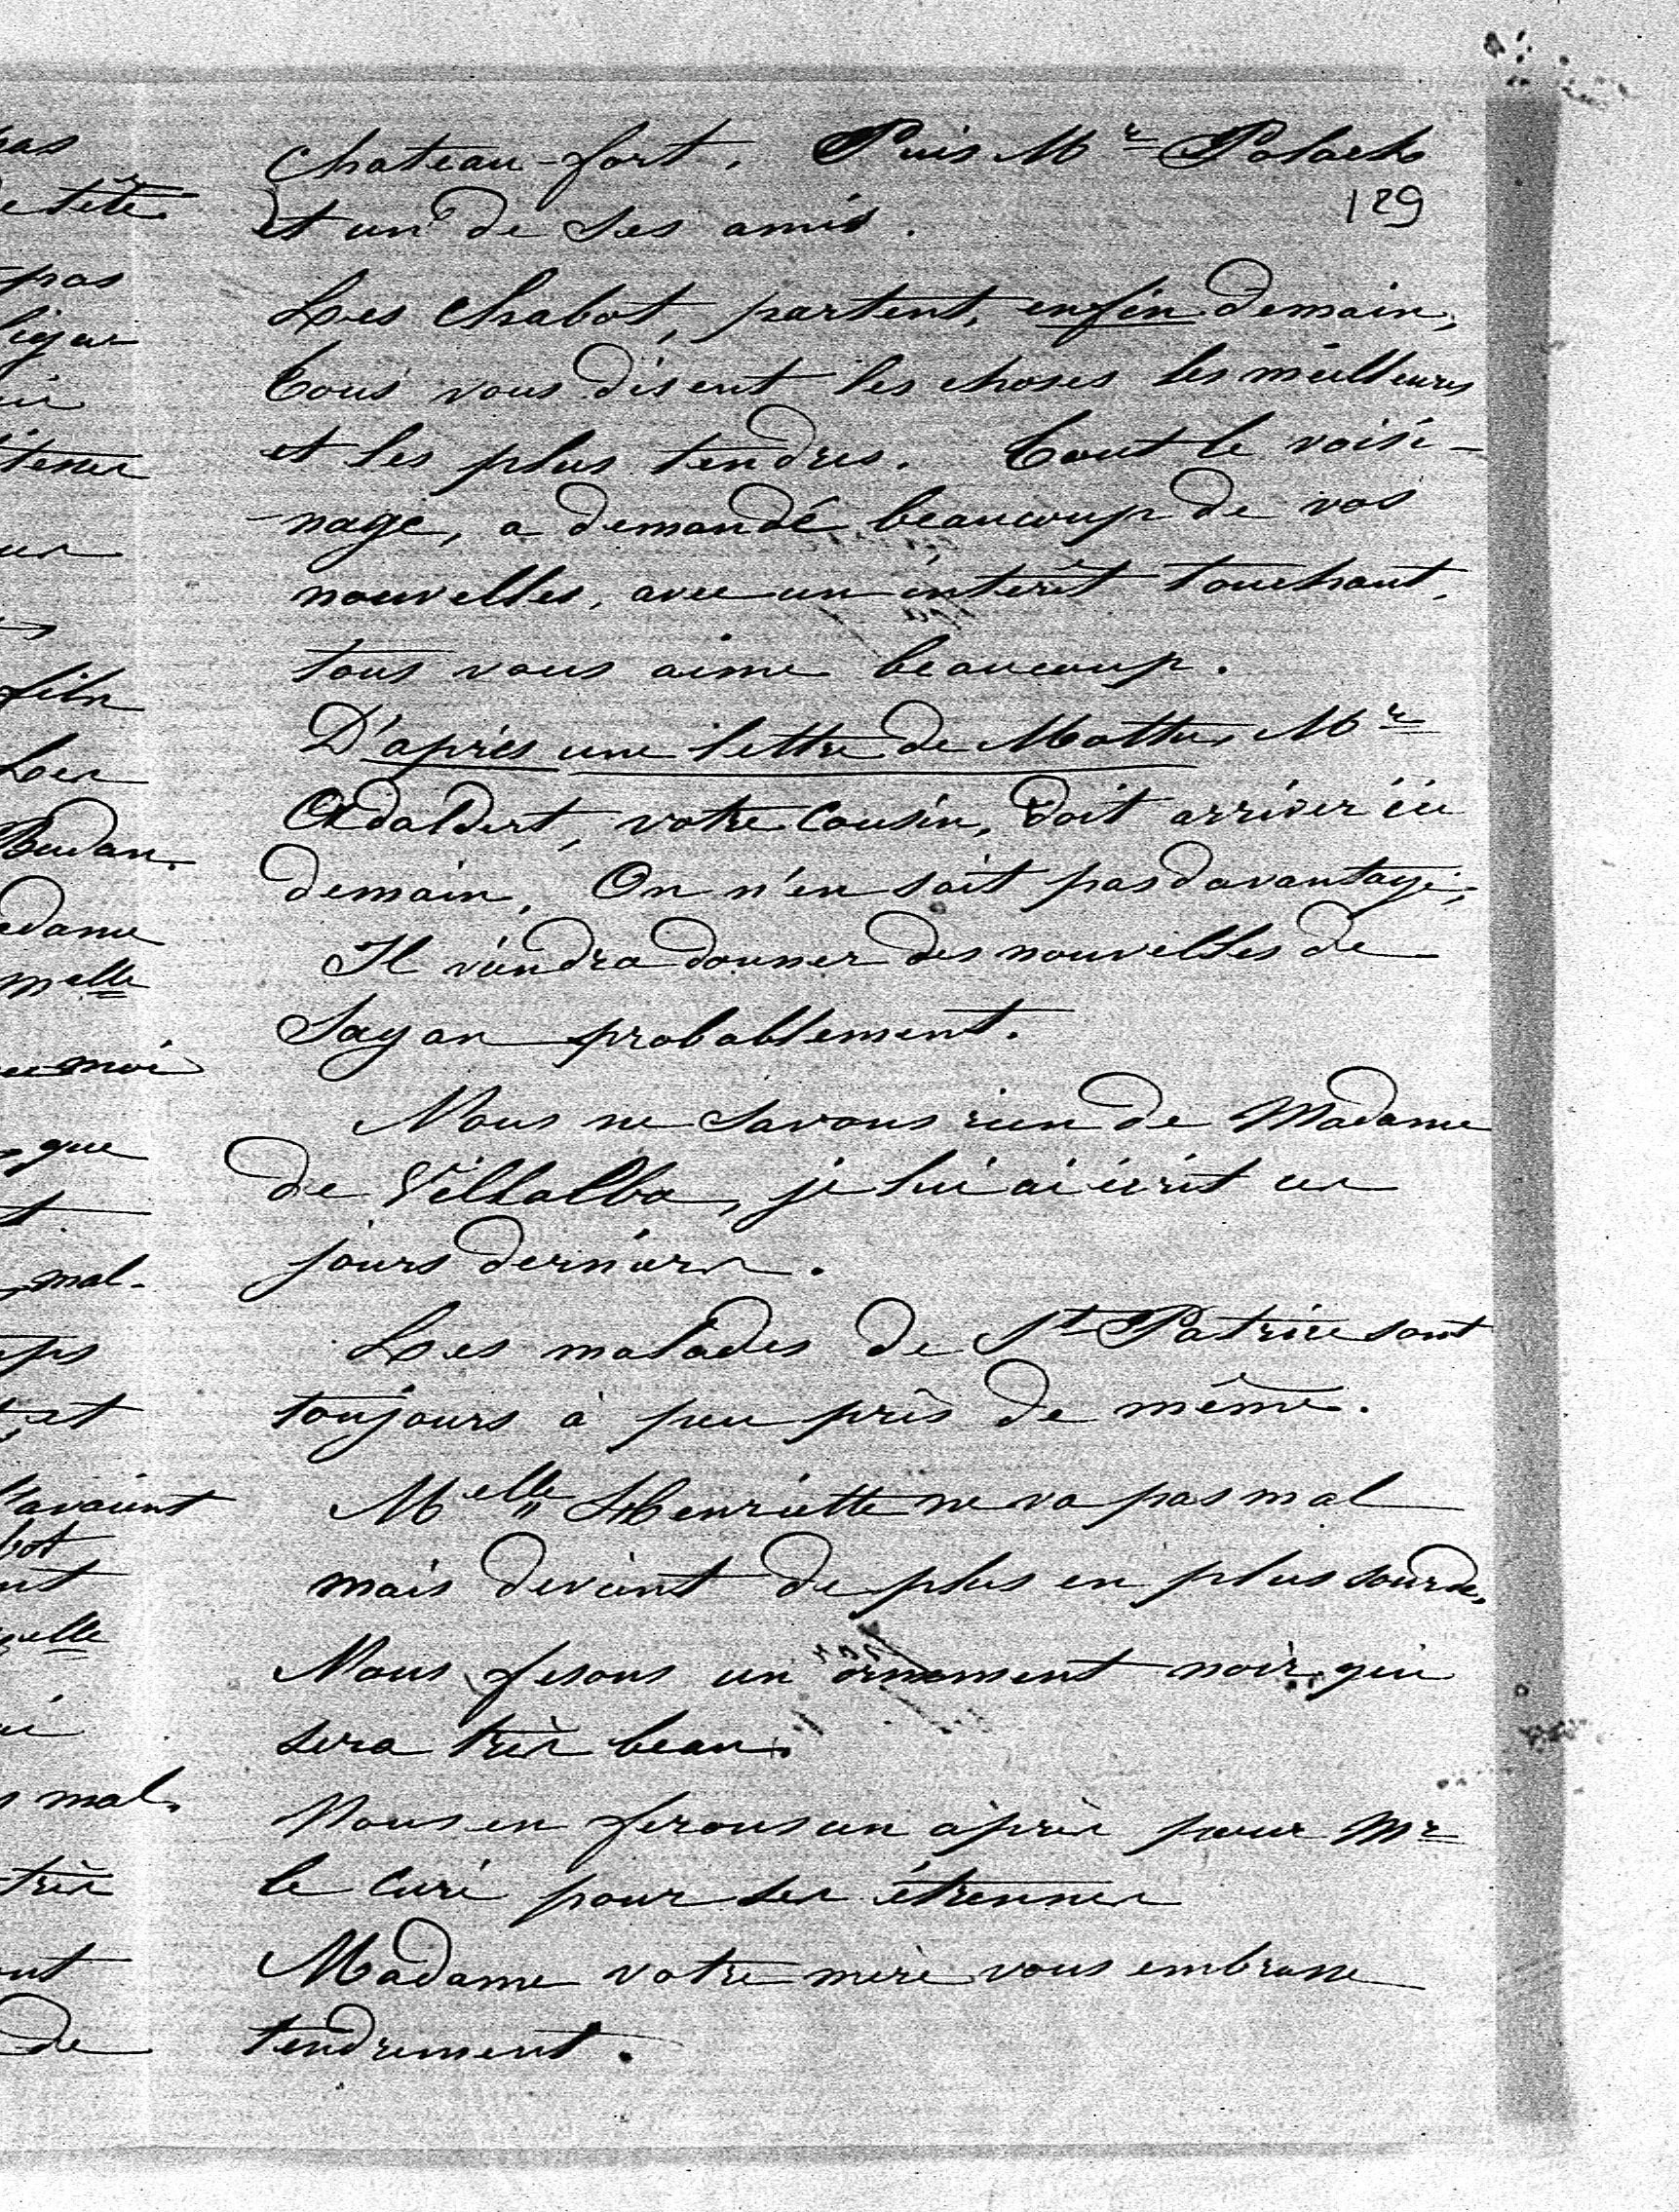 Chateau-fort. Puis Mr Polack
129
et un de ses amis.
Les Chabot, partent, enfin demain,
tous vous disent les choses les meilleures
et les plus tendres. Tout le voisi-
-nage, a demandé beaucoup de vos
nouvelles, avec un intérêt touchant,
tous vous aime beaucoup.
D'après une lettre de Mr
Adalbert, votre Cousin, doit arriver ici
demain. On n'en sait pas davantage,
Il viendra donner des nouvelles de
Sagan probablement.
Nous ne savons rien de Madame
de Villalba, je lui ai écrit ces
jours derniers.
Les malades de St Patrice sont
toujours à peu près de même.
Melle Henriette ne va pas mal
mais devient de plus en plus sourde,
Nous fesons un ornement noir qui
sera très beau.
Nous en ferons un après pour Mr
le Curé pour ses étrennes
Madame votre mère vous embrasse
tendrement.
pas
tête
pas
fils
Les
Budan.
melle
moi
que
mal-
et
l'avaient
elle
mal.
très
de